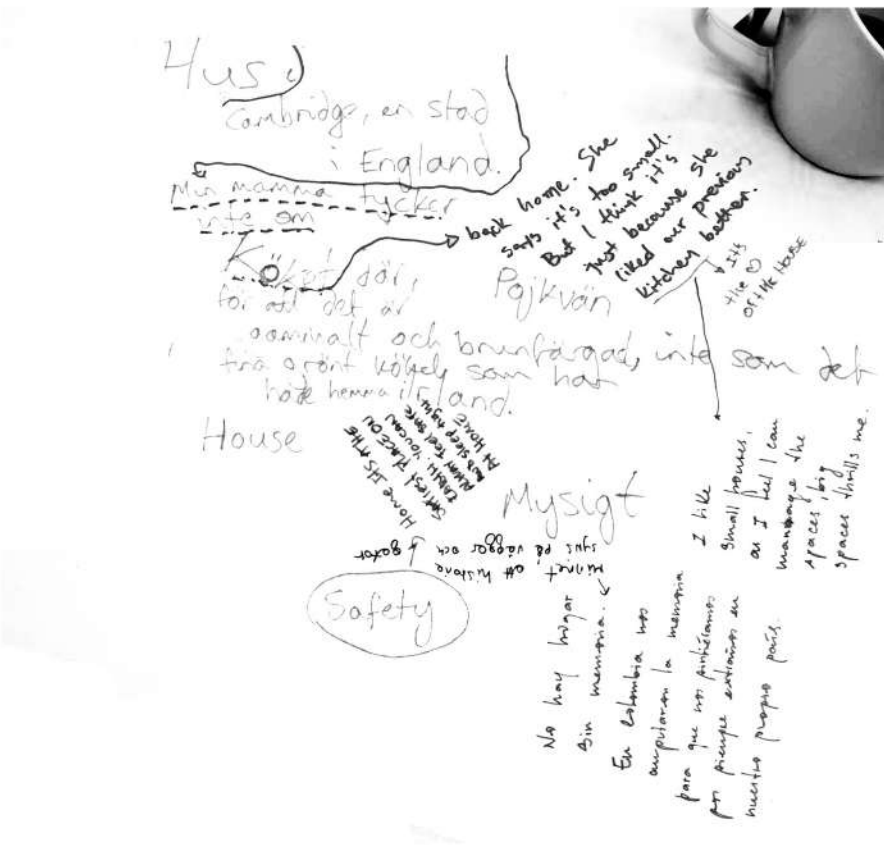 Hus i
Cambridge, en stad
i England.
Min mamma tycker
inte om
Köket där,
för att det är
gammalt och brunfärgad, inte som det
fina grönt köket som har
hemma i Irland.
back home. She
says it's too small.
But I think it's
just because she
liked our previous
kitchen better.
Its
the
OF THE HOUSE
Pojkvän
House
HOME ITS THE
SAFIEST PLACE ON
EARTH YOU CAN
ALWAY FEEL SAFE
AND SLEEP tight
At HOME
Mysigt
I like
small houses,
as I feel I can
manage the
spaces, big
spaces thrills me.
minnet att historia
syns på väggar och
gator
Safety
No hay hogar
sin memoria.
En Colombia nos
amputaron la memoria
para que nos sintiéramos
por siempre extraños en
nuestro propio país.